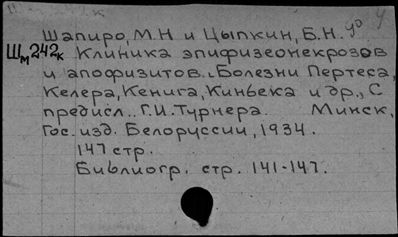 Шапиро, М.Н и Цыпкин, Б.Н.
Шм242к Клиника эпифизеонекрозов
и апофизитов. Болезни Пертеса,
Келера, Кенига, Кинбека и др., С
предисл.. Г.И. Турнера. Минск,
Гос. изд. Белоруссии, 1934.
147 стр.
Библиогр. стр. 141-147.